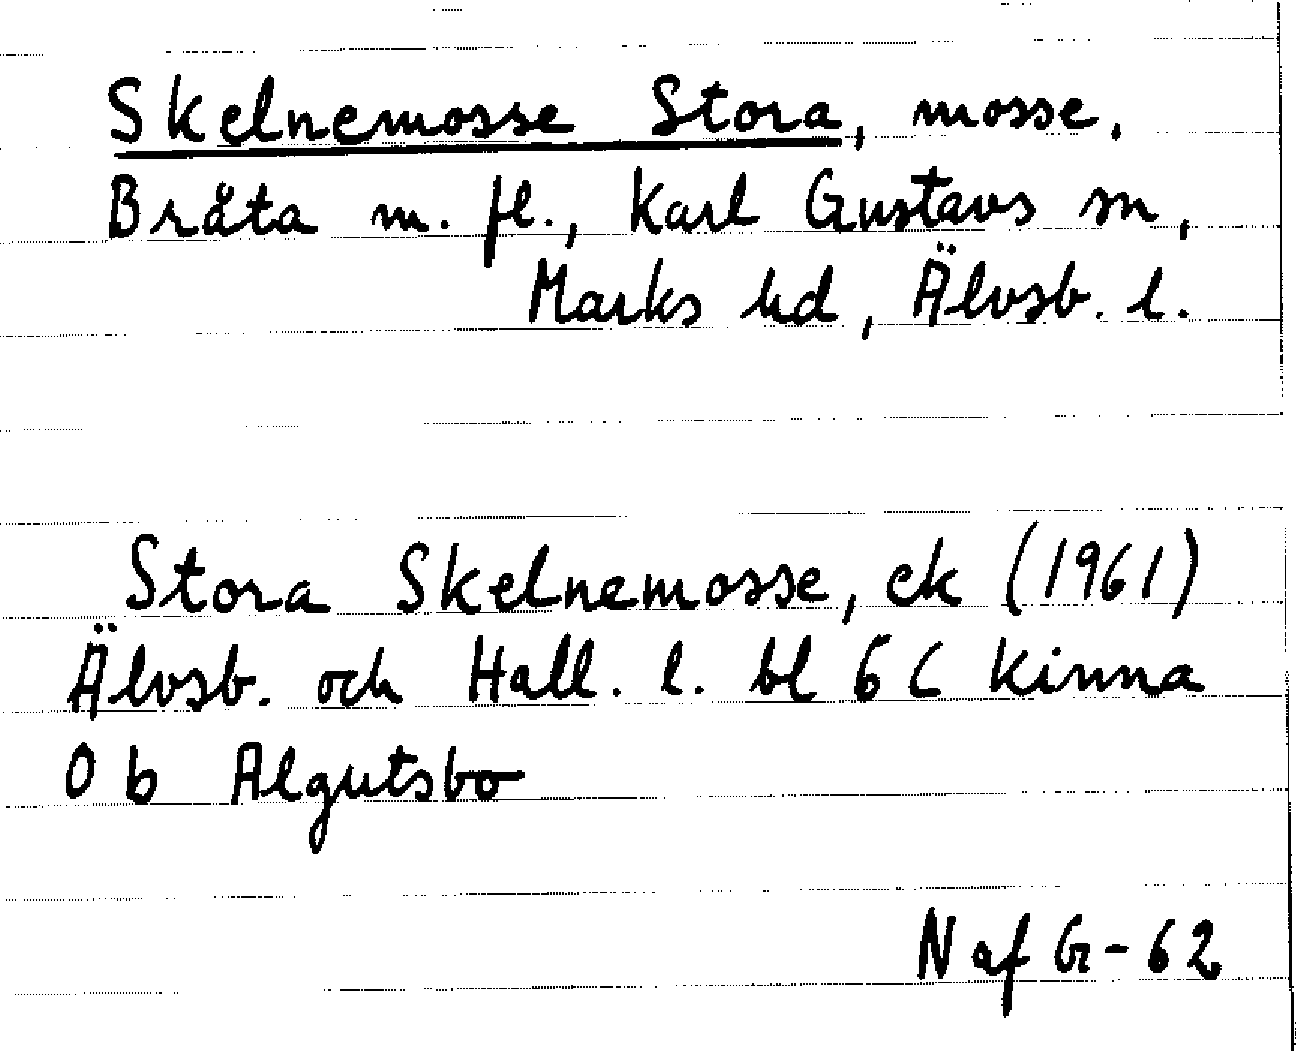 Skelnemosse Stora, mosse.
Bråta m. fl., Karl Gustavs sn,
Marks hd, Älvsb. l.
Stora Skelnemosse, ek (1961)
Älvsb. och Hall. l. bl 6 C Kinna
O b Algutsbo
N af G - 62